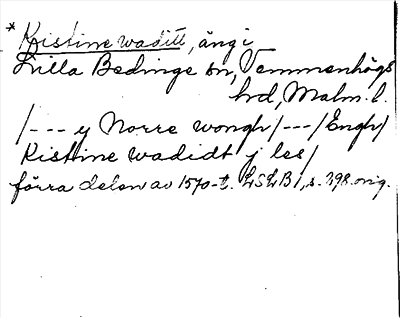 * Kristine waditt, äng i
Lilla Bedinge sn, Vemmenhögs
hrd, Malm. l.
/--- y Norre wongh/---/Engh/
Kistine wadidt j les/
förra delen av 1570-t. LSLB 1, s. 298. orig.